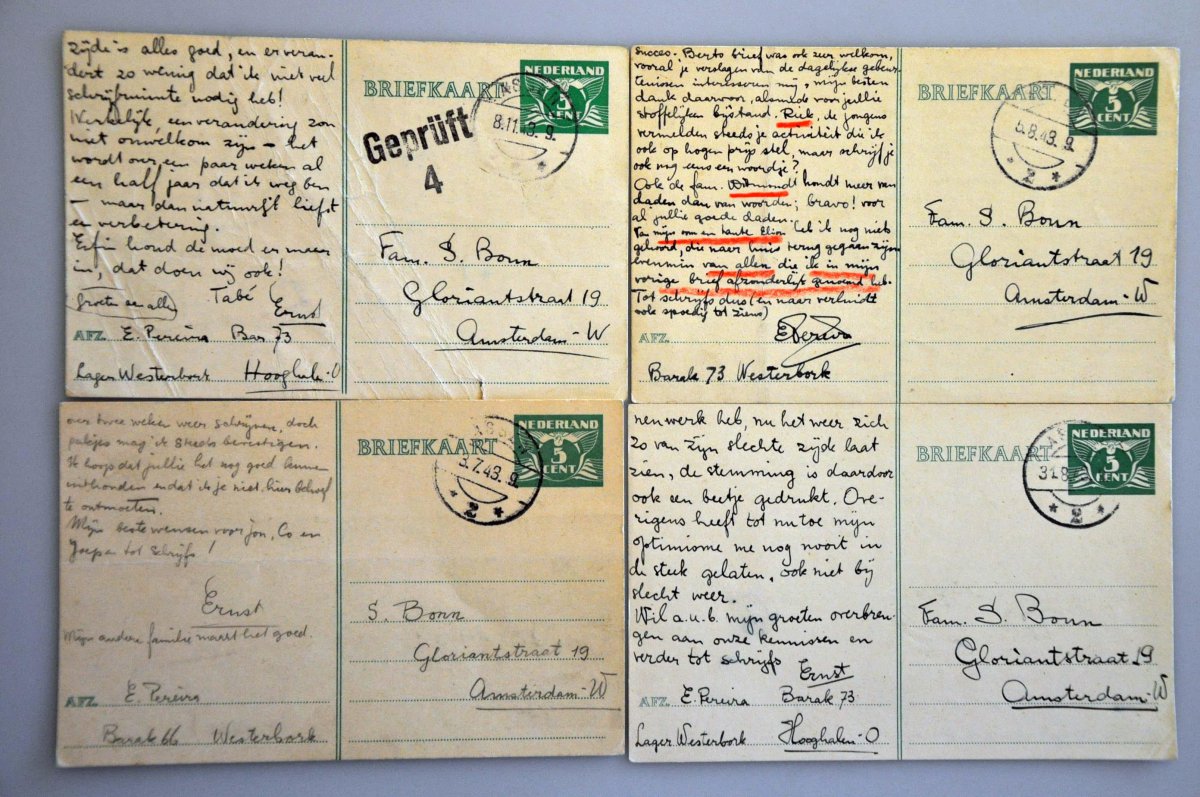 zijde is alles goed, en er veran-
dert zo weinig dat ik niet veel
schrijfruimte nodig heb!
Werkelijk, een verandering zou
niet onwelkom zijn – het
wordt over een paar weken al
een half jaar dat ik weg ben
– maar dan natuurlijk liefst
een verbetering.
Enfin houd de moed er maar
in, dat doen wij ook!
Groeten aan allen Tabé
Ernst
AFZ. E. Pereira Bar 73
Lager Westerbork Hooghalen-O
BRIEFKAART
NEDERLAND
5
CENT
ASSEN
8.11.43. 9.
Geprüft
4
Fam. S. Bonn
Gloriantstraat 19
Amsterdam-W
succes. Berts brief was ook zeer welkom,
vooral je verslagen van de dagelijkse gebeur-
tenissen interesseren mij, mijn besten
dank daarvoor, alsmede voor jullie
stoffelijken bijstand. Riek, de jongens
vermelden steeds je activiteit die ik
ook op hogen prijs stel, maar schrijf je
ook nog eens een woordje?
Ook de fam. houdt meer van
daden dan van woorden; bravo! voor
al jullie goede daden.
Van mijn oom en tante Elion heb ik nog niet
gehoord, die naar huis terug gegaan zijn
evenmin van allen die ik in mijn
vorige brief afzonderlijk genoemd heb.
Tot schrijfs dus (en naar verluidt
ook spoedig tot ziens)
EPereira
AFZ.
Barak 73 Westerbork
BRIEFKAART
NEDERLAND
5
CENT
5.8.43. 9.
2
Fam. S. Bonn
Gloriantstraat 19
Amsterdam-W
over twee weken weer schrijven, doch
pakjes mag ik steeds bevestigen.
Ik hoop dat jullie het nog goed kunnen
uithouden en dat ik je niet hier behoef
te ontmoeten.
Mijn beste wensen voor jou, Co en
Joep en tot schrijfs!
Ernst
Mijn andere familie maakt het goed.
AFZ. E. Pereira
Barak 66 Westerbork
BRIEFKAART
NEDERLAND
5
CENT
ASSEN
3.7.43. 9.
2
S. Bonn
Gloriantstraat 19
Amsterdam-W
nenwerk heb, nu het weer zich
zo van zijn slechte zijde laat
zien, de stemming is daardoor
ook een beetje gedrukt. Ove-
rigens heeft tot nu toe mijn
optimisme me nog nooit in
de steek gelaten, ook niet bij
slecht weer.
Wil a.u.b. mijn groeten overbren-
gen aan onze kennissen en
verder tot schrijfs
Ernst
AFZ. E. Pereira Barak 73
Lager Westerbork Hooghalen-O
BRIEFKAART
NEDERLAND
5
CENT
31.8
2
Fam. S. Bonn
Gloriantstraat 19
Amsterdam-W